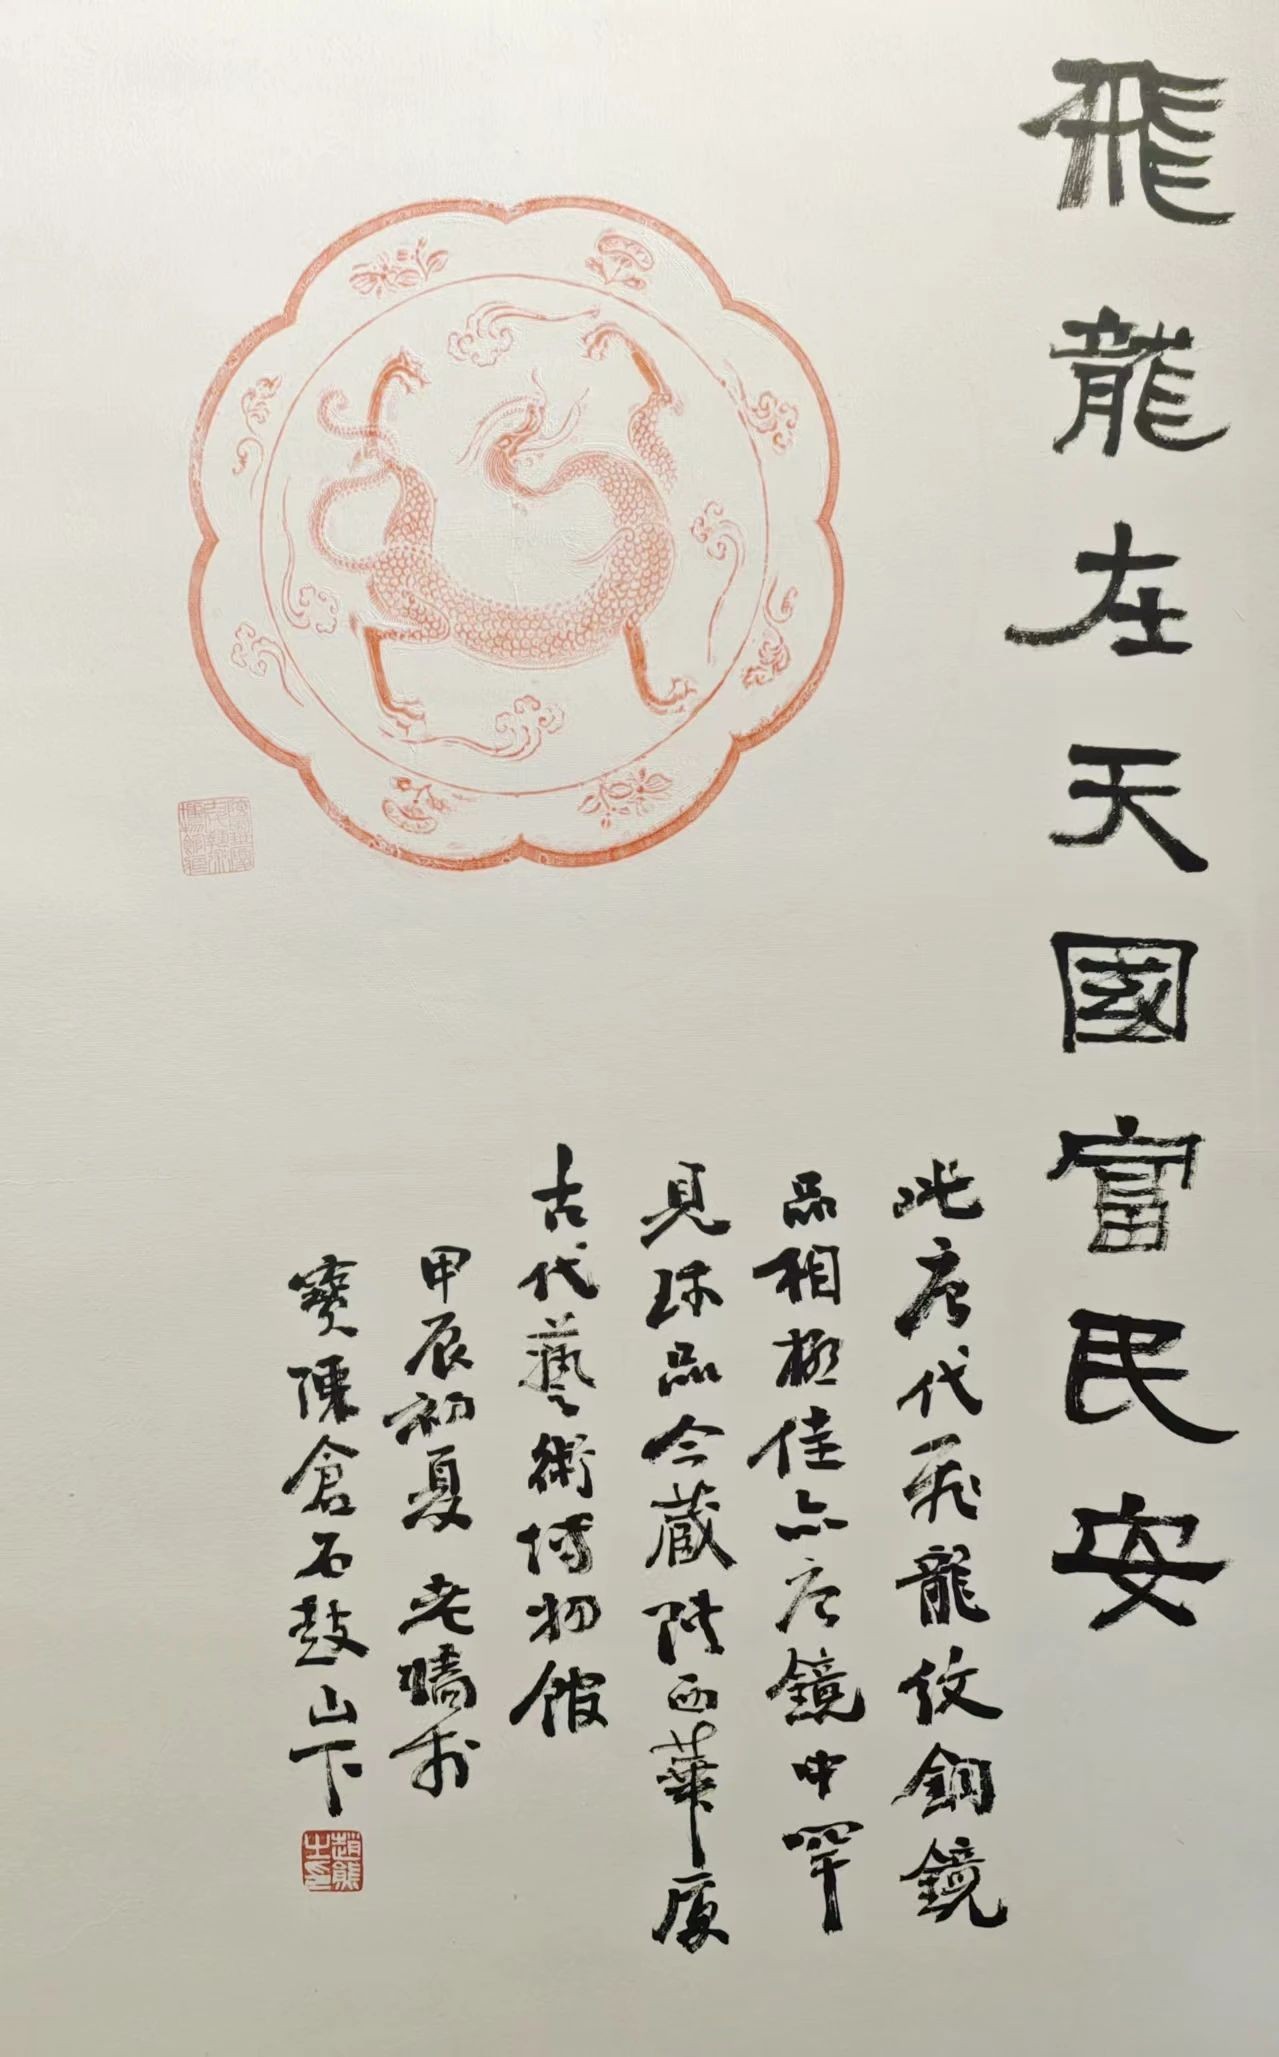 飛龍在天國富民安
此唐代飛龍紋銅鏡
品相極佳亦唐鏡中罕
見珎品今蔵陕西華厦
古代藝術博物館
甲辰初夏 老
寶陳倉石鼓山下
趙熊之印